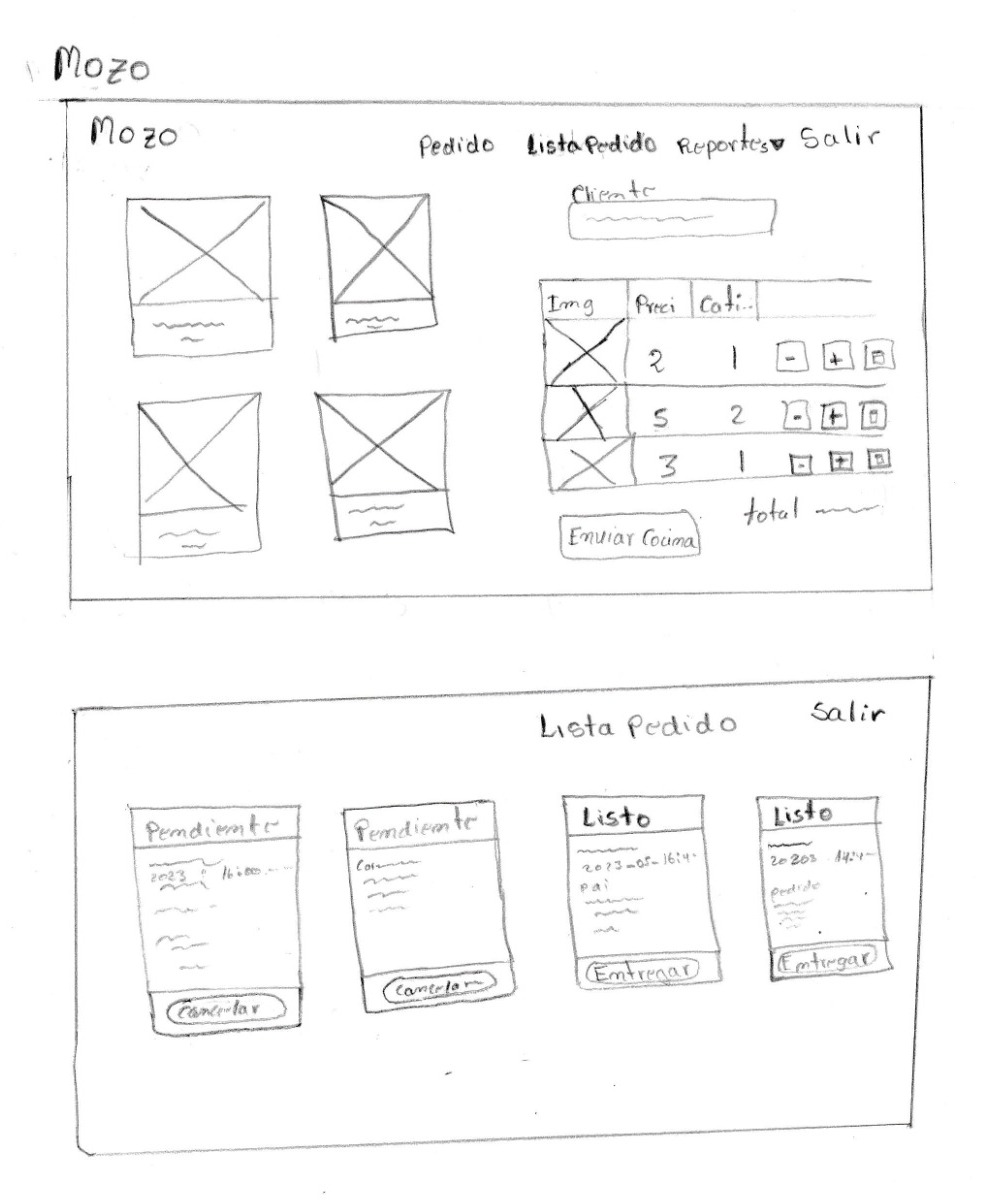 Mozo
Mozo
Pedido Lista Pedido Reportes Salir
Cliente
Img Preci Cati..
2 1 - +
5 2 - +
3 1 - +
total
Enviar Cocina
Lista Pedido Salir
Pendiente
2023 16:00
Cancelar
Pendiente
Cancelar
Listo
2023-05-16:4
pai
Entregar
Listo
20203 14:4
pedido
Entregar